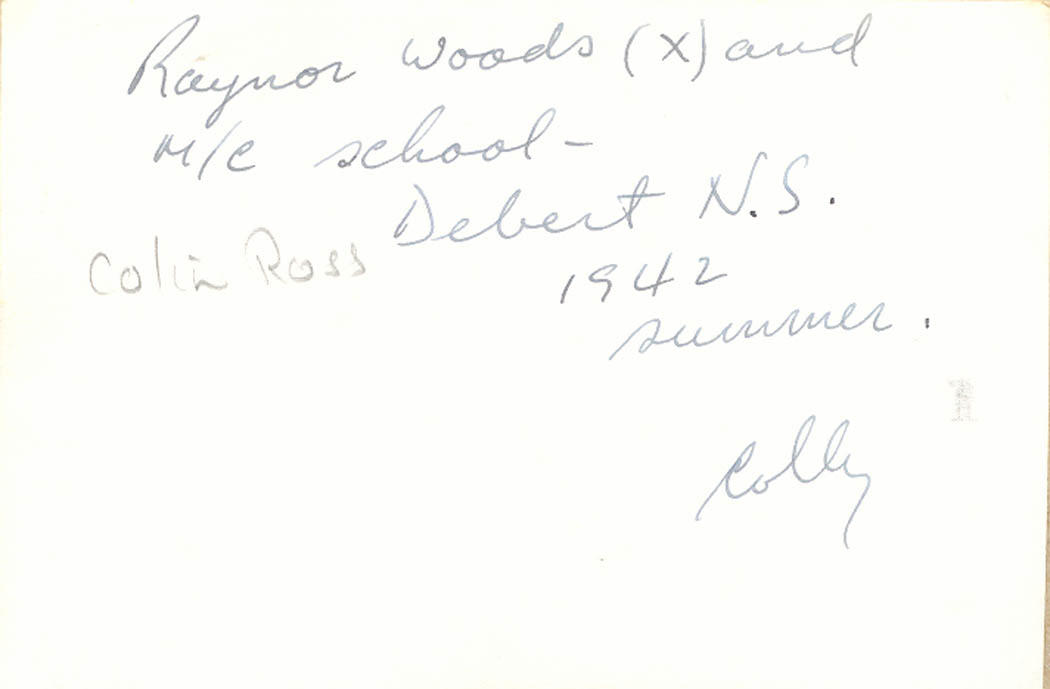 Raynor Woods (X) and
M/C school -
Debert N.S.
Colin Ross
1942
summer.
1
Colly